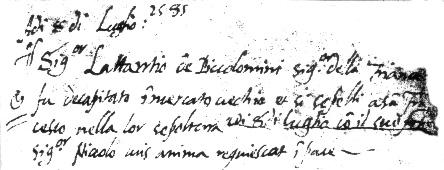 Adi 8 di Luglio: 1585
Il Sig.or Lattantio de Piccolomini Sig.or della Triana
fu decapitato i mercato vechio et si sepelli a sā frā
cesco nella lor sepoltura adi 8 i luglio cō il suo
Sig.or Nicolo cuis anima requiescat ī pace